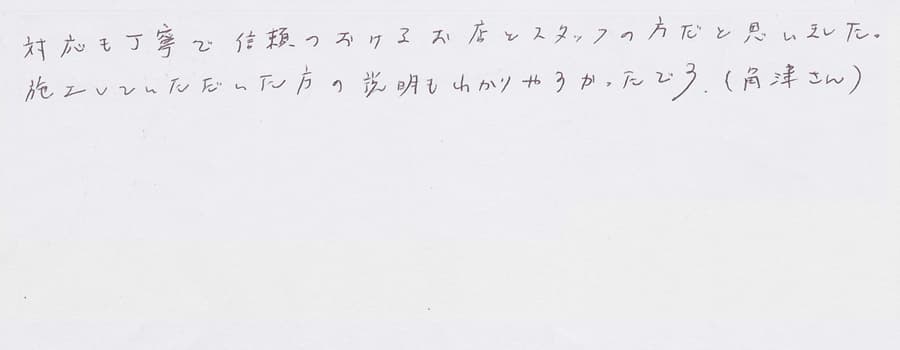 対応も丁寧で信頼のおけるお店とスタッフの方だと思いました。
施工していただいた方の説明もわかりやすかったです。(角津さん)